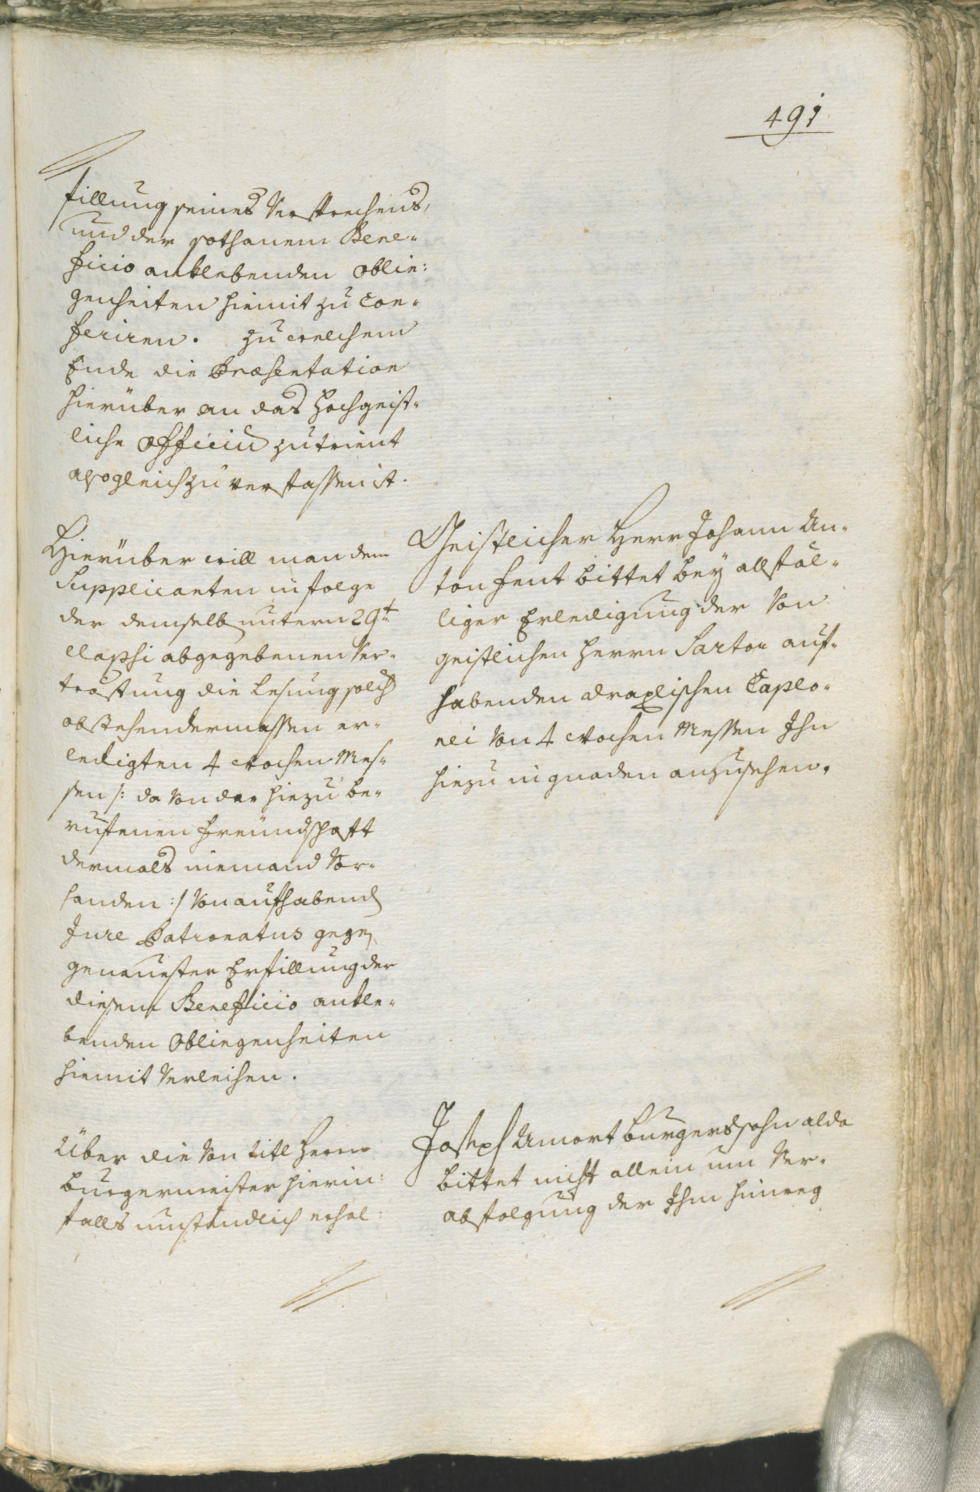 491
fillung seines Versprechens,
und der sothanem Bene-
ficio anklebenden oblie:
genheiten hiemit zu con-
feriren. zu welchem
Ende die Præsentation
hierüber an das hochgeist-
liche Officiu zu trient
alsogleich zu verfassen ist.
Hierüber will man dem
Supplicanten in folge
der demselb untern 29t
elapsi abgegebenen Ver-
tröstung die Lesung solch
obstehendermassen er-
ledigten 4 wochen Mes-
sen /: da von der hiezu be-
ruffenen freündschafft
dermals niemand Vor-
handen :/ Von aufhabend
Jure Patronatus gegen
genauester Erfillung der
diesem Beneficio ankle-
benden Obliegenheiten
hiemit Verleihen.
Geistlicher Herr Johann An-
ton fent bittet bey allfäl-
liger Erledigung der Von
geistlichen herrn Sartor auf-
habenden draxlischen Caplo-
nei Von 4 wochen Messen Ihn
hiezu in gnaden anzusehen.
Über die Von titl herrn
burgermeister hierin:
falls umständlich erhol:
Joseph Amort burgerssohn alda
bittet nicht allein um Ver-
abfolgung der Ihm hinweg